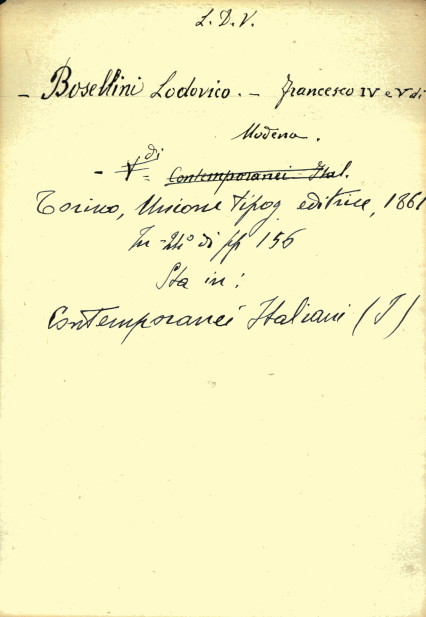 L. D. V.
- Bosellini Lodovico. - Francesco IV e V di
Modena.
di
- V = Contemporanei Ital.
Torino, Unione tipog. editrice, 1861
In-24° di pp 156
Sta in:
Contemporanei Italiani (I)